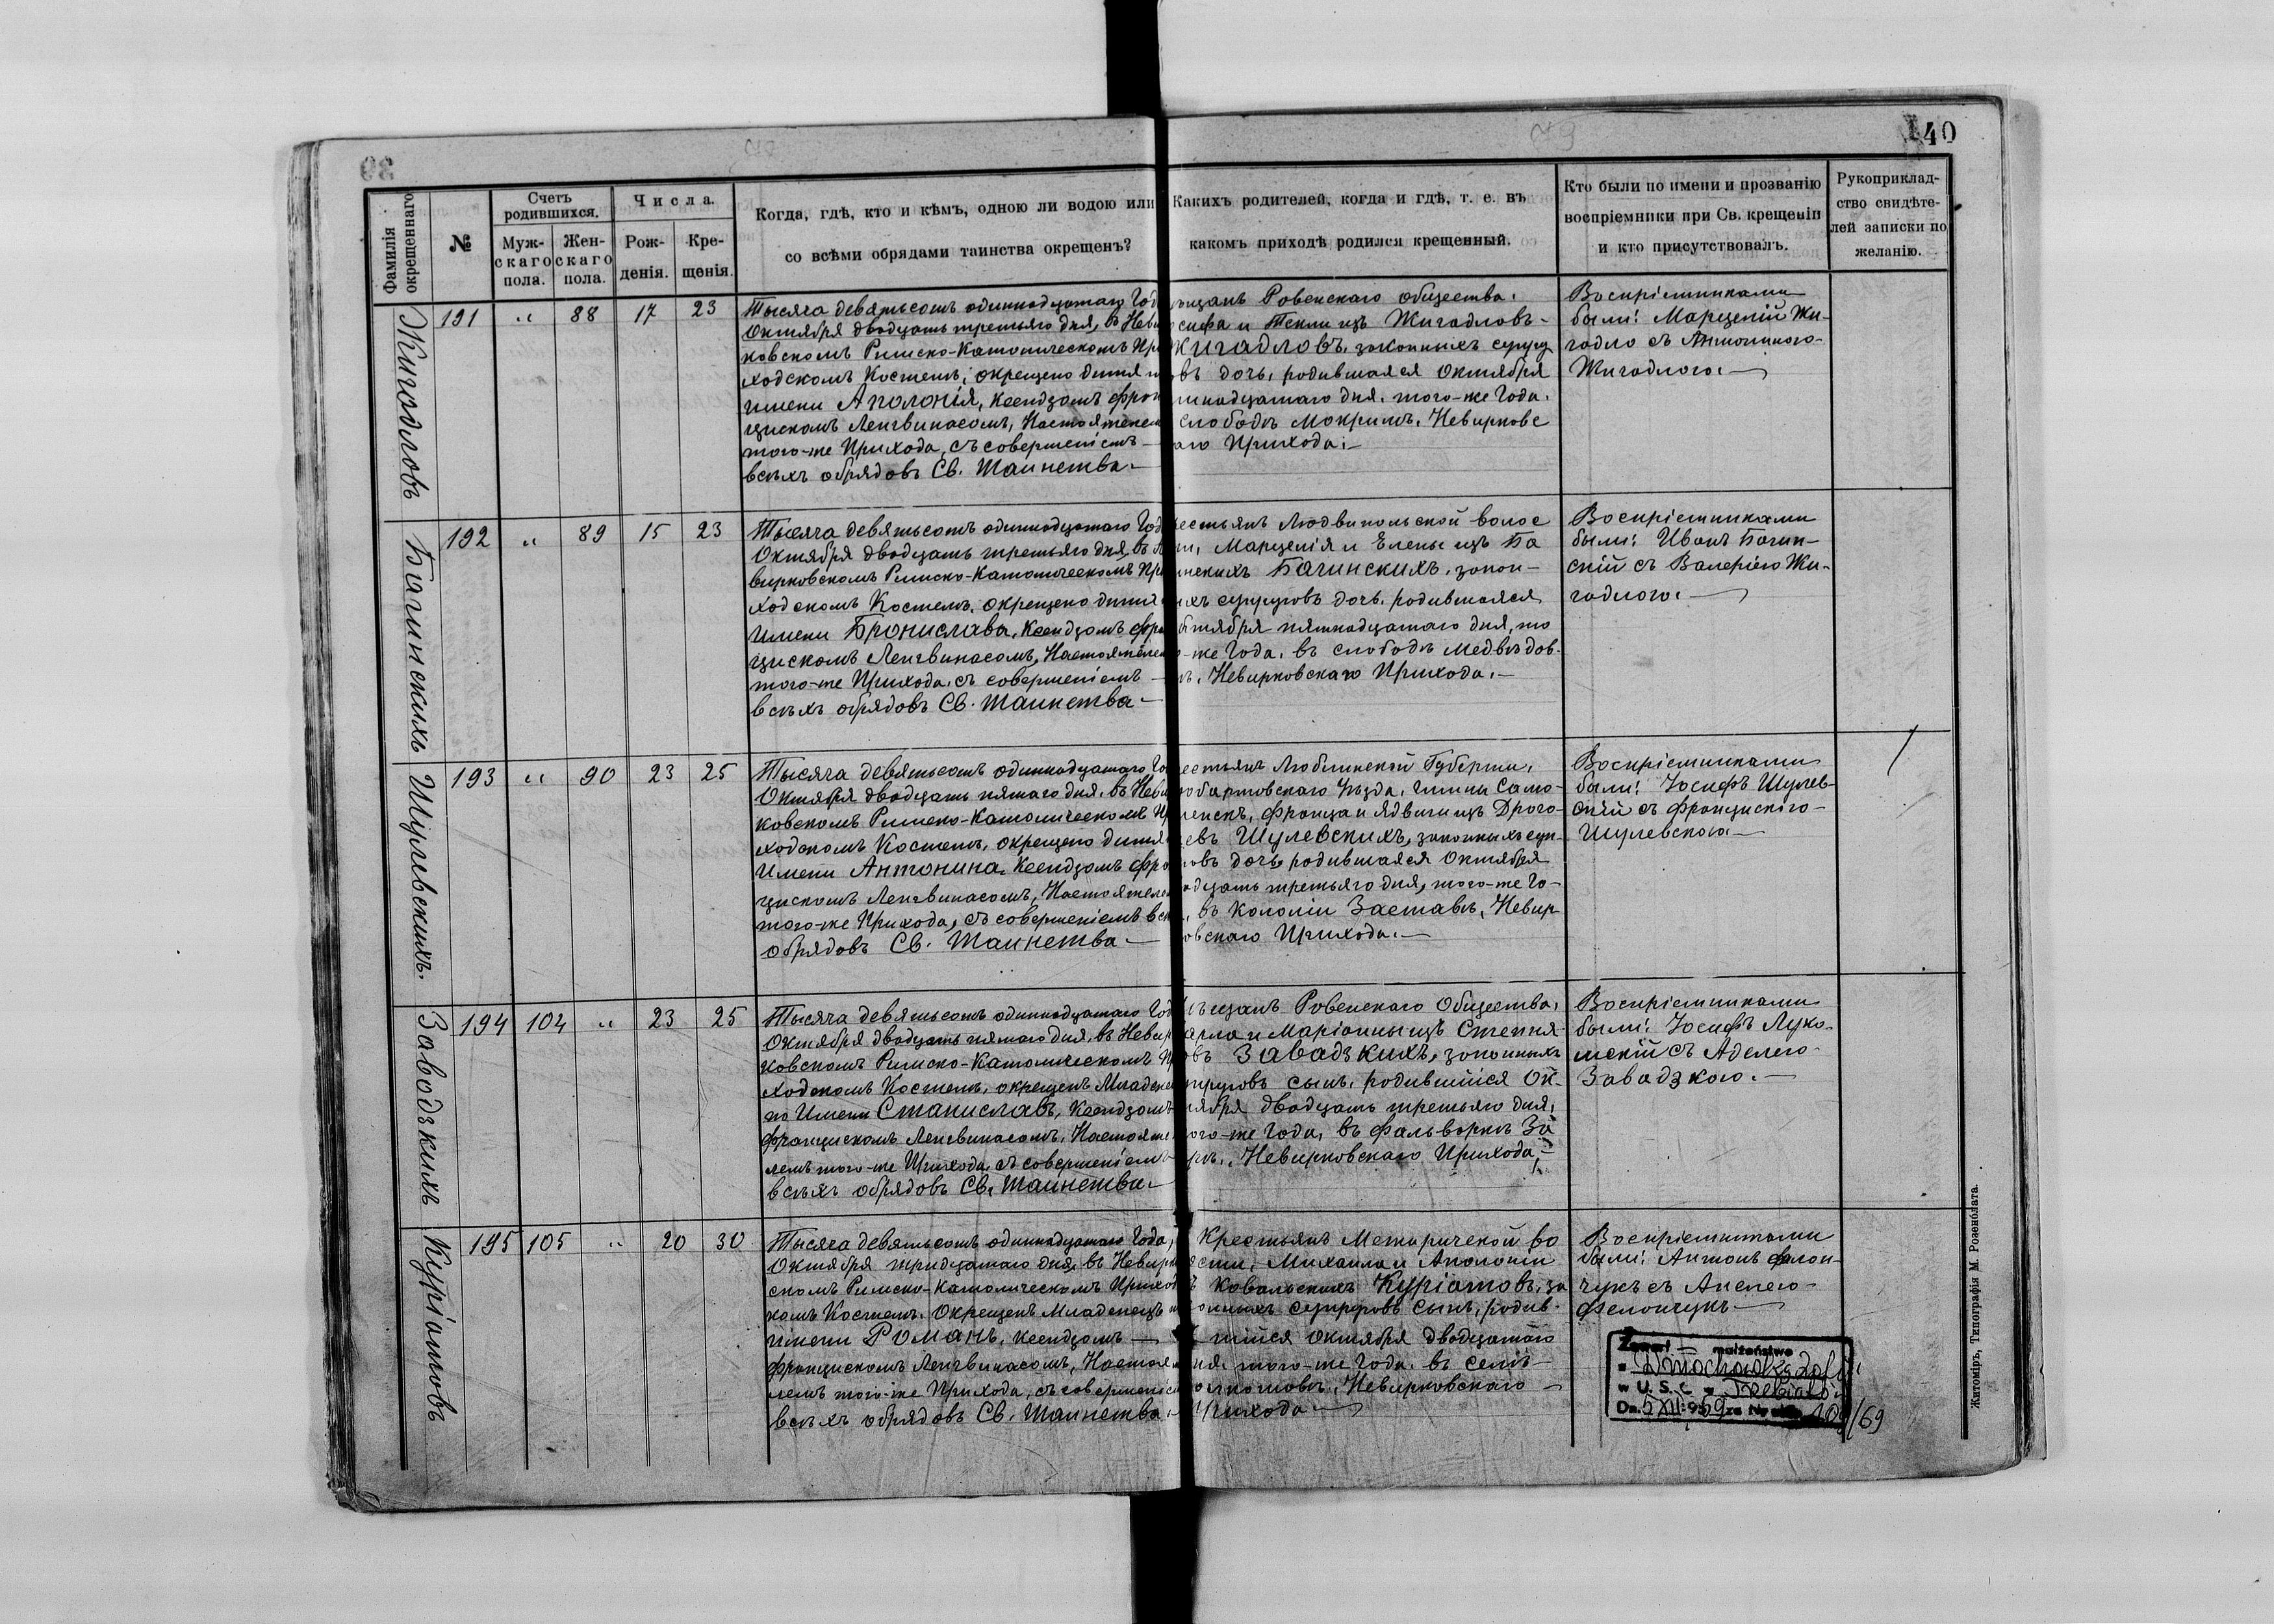 140
39
Фамилія окрещеннаго
№
Счетъ родившихся.
Муж-скаго пола.
Жен-скаго пола.
Числа.
Рож-денія.
Кре-щенія.
Когда, гдѣ, кто и кѣмъ, одною ли водою или
со всѣми обрядами таинства окрещенъ?
Какихъ родителей, когда и гдѣ, т. е. въ
какомъ приходѣ родился крещенный.
Кто были по имени и прозванію
воспріемники при Св. крещеніи
и кто присутствовалъ.
Рукоприклад-
ство свидѣте-
лей записки по
желанію.
Жигадловъ
191 " 88 17 23
Тысяча девятьсотъ одиннадцатаго Год
Октября двадцать третьяго дня, въ Неви
ковскомъ Римско-Католическомъ При
ходскомъ Костелѣ, окрещено дитя п
имени Аполонія, Ксендзомъ Фран
цискомъ Ленгвинасомъ, Настоятелем
того-же Прихода, съ совершеніемъ —
всѣхъ обрядовъ Св. Таинства.—
щанъ Ровенскаго общества,
сифа и Теклы изъ Жигадловъ-
Жигадловъ, законныхъ супруг
овъ дочь, родившаяся Октября
надцатаго дня, того-же Года,
слободѣ Мокримъ, Невирковс
аго Прихода.—
Воспріемниками
были: Марцелій Жи-
гадло съ Антониною-
Жигадлого.—
Багинскихъ
192 " 89 15 23
Тысяча девятьсотъ одиннадцатаго Год
Октября двадцать третьяго дня, въ Н
вирковскомъ Римско-Католическомъ При
ходскомъ Костелѣ, окрещено дитя
имени Бронислава, Ксендзомъ Фра
цискомъ Ленгвинасомъ, Настоятелем
того-же Прихода, съ совершеніемъ —
всѣхъ обрядовъ Св. Таинства—
рестьянъ Людвипольской волос
ти, Марцелія и Елены изъ Ба
инскихъ Багинскихъ, закон-
ыхъ супруговъ дочь, родившаяся
Октября пятнадцатаго дня, то
-же Года, въ слободѣ Медвѣдов-
ѣ, Невирковскаго Прихода.—
Воспріемниками
были: Иванъ Багин-
скій съ Валеріею Жи-
гадлого.—
Шулевскихъ.
193 " 90 23 25
Тысяча девятьсотъ одиннадцатаго Го
Октября двадцать пятаго дня, въ Неви
ковскомъ Римско-Католическомъ Пр
ходскомъ Костелѣ, окрещено дитя
имени Антонина, Ксендзомъ Фра
цискомъ Ленгвинасомъ, Настоятеле
того-же Прихода, съ совершеніемъ всѣ
обрядовъ Св. Таинства—
естьянъ Люблинской Губерніи,
юбартовскаго Уѣзда, Гмины Само-
Франца и Ядвиги изъ Драго-
евъ Шулевскихъ, законныхъ суп-
овъ дочь, родившаяся Октября
адцать третьяго дня, того-же Го-
, въ Колоніи Заставѣ, Невир-
овскаго Прихода.—
Воспріемниками
были: Іосифъ Шулев-
скій съ Францискою-
Шулевскою—
Завадзкихъ
194 104 " 23 25
Тысяча девятьсотъ одиннадцатаго Год
Октября двадцать пятаго дня, въ Невир
ковскомъ Римско-Католическомъ П
ходскомъ Костелѣ, окрещенъ Младене
по Имени Станиславъ, Ксендзомъ
Францискомъ Ленгвинасомъ, Настояте
лемъ того-же Прихода, съ совершеніемъ
всѣхъ обрядовъ Св. Таинства—
ѣщанъ Ровенскаго Общества,
арла и Маріанны изъ Степня-
овъ Завадзкихъ, законныхъ
упруговъ сынъ, родившійся Ок-
тября двадцать третьяго дня,
ого-же Года, въ фальваркѣ За
Невирковскаго Прихода.—
Воспріемниками
были: Іосифъ Луко-
мскій съ Аделею-
Завадзкою.—
Куріатовъ
195 105 " 20 30
Тысяча девятьсотъ одиннадцатаго Года,
Октября тридцатаго дня, въ Невирк
скомъ Римско-Католическомъ Приход
комъ Костелѣ, Окрещенъ Младенецъ
имени Романъ, Ксендзомъ —
Францискомъ Ленгвинасомъ, Настоя
лемъ того-же Прихода, съ совершеніем
всѣхъ обрядовъ Св. Таинства.
Крестьянъ Межиричской во
лости, Михаила и Аполоніи
Ковальскихъ Куріатовъ, за
конныхъ супруговъ сынъ, родив-
шійся Октября двадцатаго
дня, того-же Года, въ селѣ
Невирковскаго
Прихода—
Воспріемниками
были: Антонъ
чукъ съ Анелею-
Zawarł — małżeństwo
z Dmochowską Zofią
w U. S. C. w Trzebiatów
Dn. 5 XII 1959 za Nr 109/69
Житоміръ, Типографія М. Розенблата.